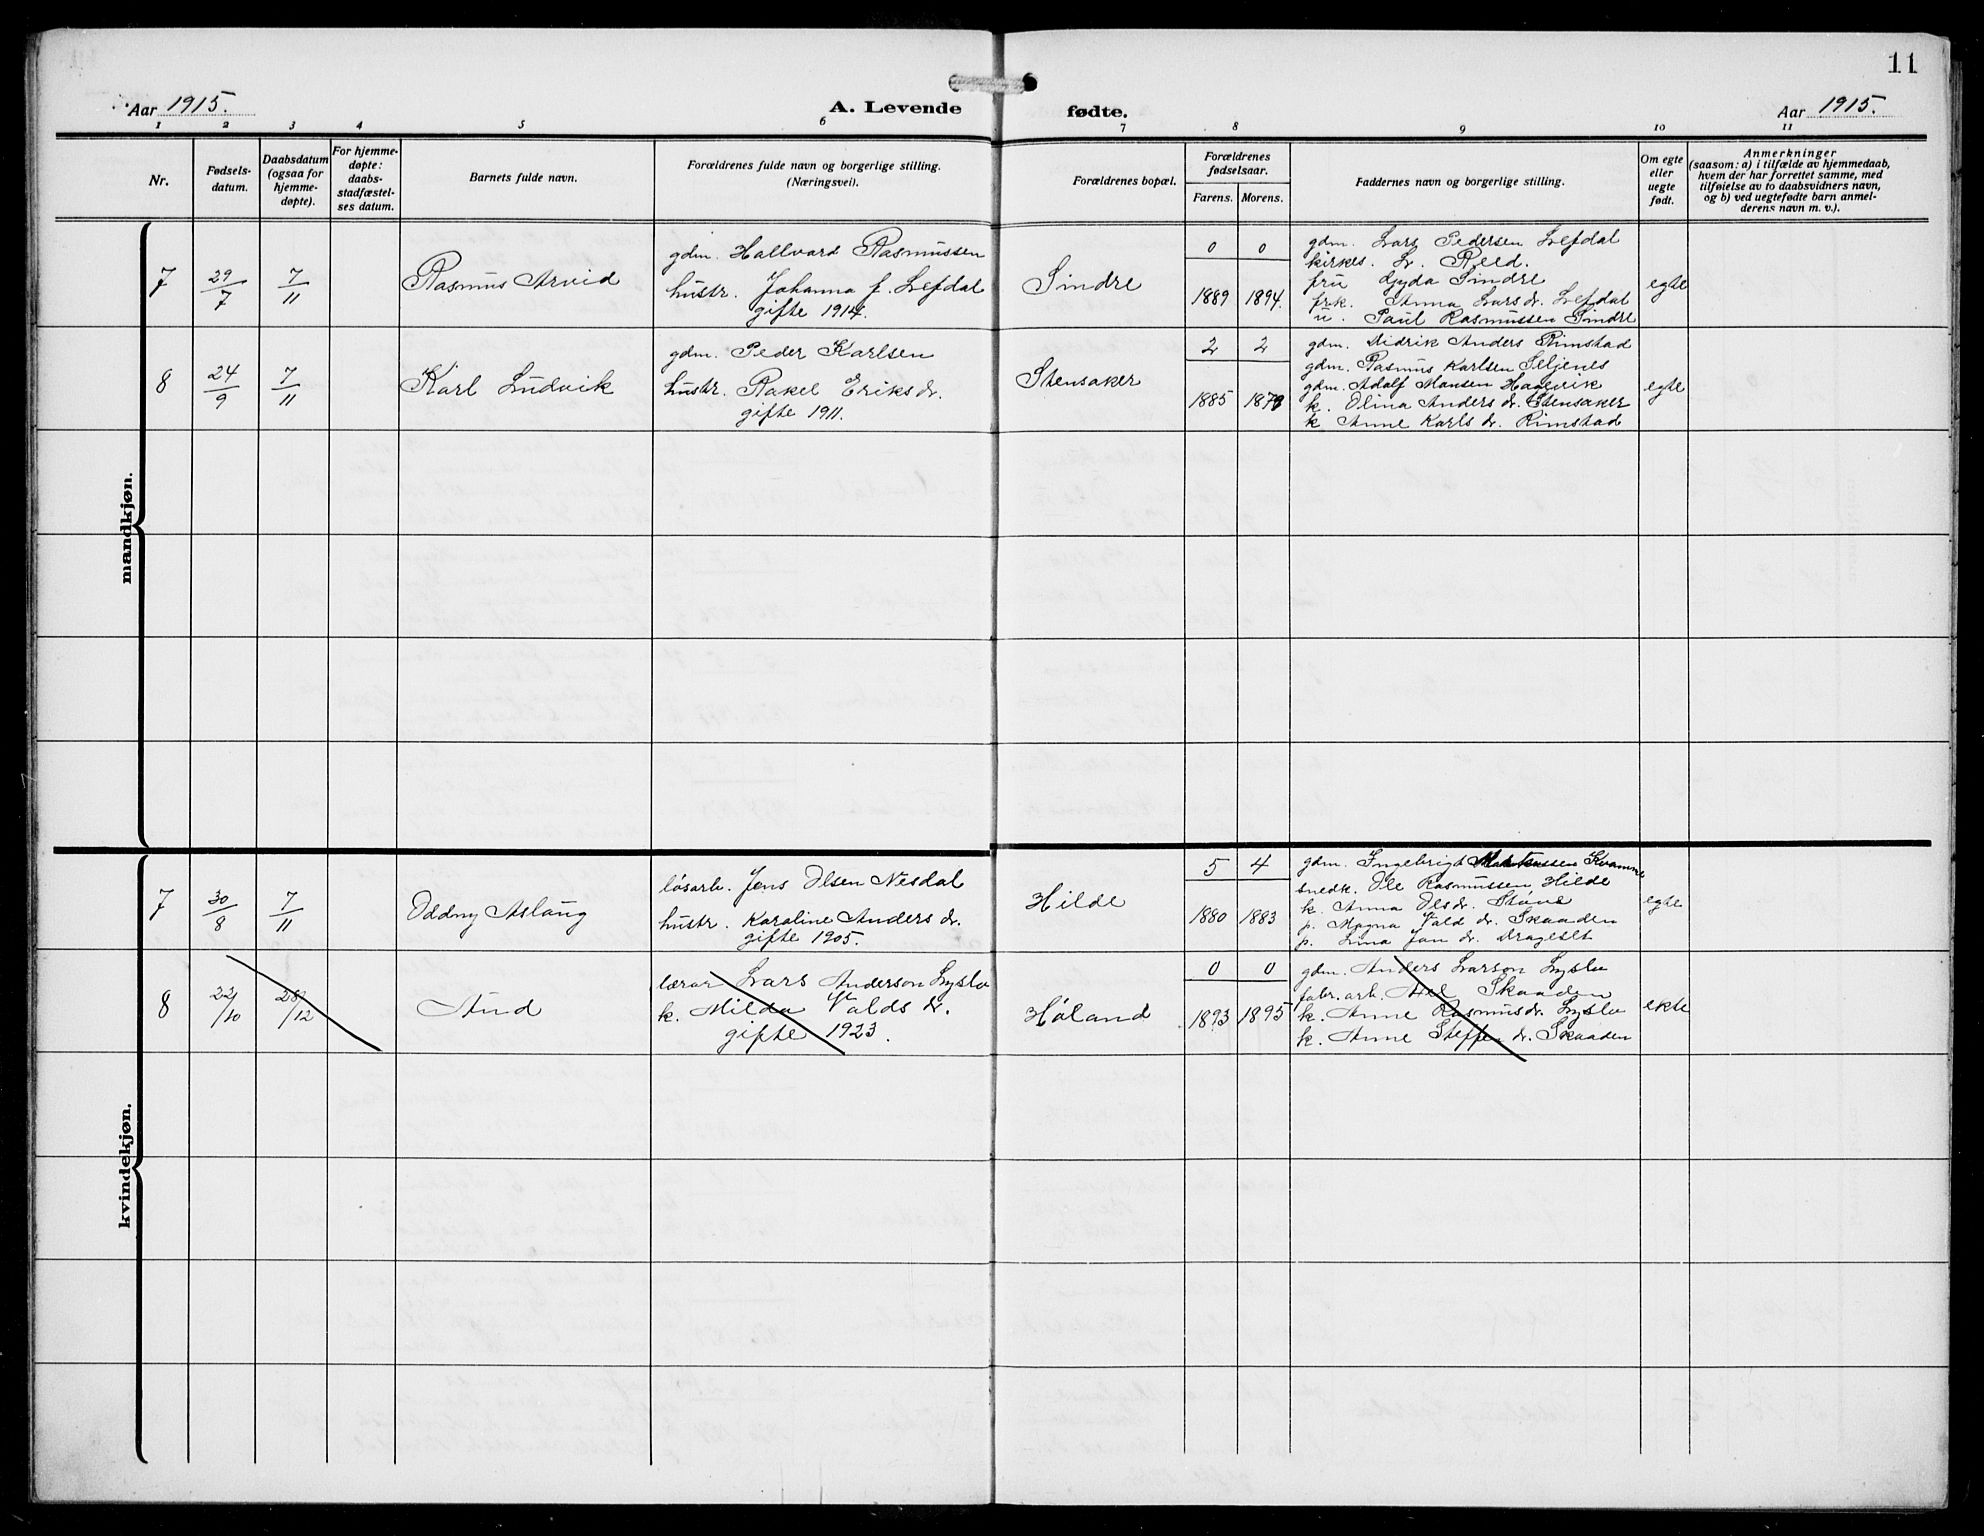 11
Aar 1915.
A. Levende
fødte.
Aar 1915.
1 2 3 4 5 6 7 8 9 10 11
Nr.
Fødsels-
datum.
Daabsdatum
(ogsaa for
hjemme-
døpte).
For hjemme-
døpte:
daabs-
stadfæstel-
ses datum.
Barnets fulde navn.
Forældrenes fulde navn og borgerlige stilling.
(Næringsvei).
Forældrenes bopæl.
Forældrenes
fødselsaar.
Farens. Morens.
Faddernes navn og borgerlige stilling.
Om egte
eller
uegte
født.
Anmerkninger
(saasom: a) i tilfælde av hjemmedaab,
hvem der har forrettet samme, med
tilføielse av to daabsvidners navn,
og b) ved uegtefødte barn anmel-
derens navn m. v.).
mandkjøn.
7
29/7
7/11
Rasmus Arvid
gdm. Hallvard Rasmussen
hustr. Johanna f. Lefdal
gifte 1914.
Sindre
0 0
1889 1894.
gdm. Lars Pedersen Lefdal
kirkes. L. Reed.
fru Gyda Sindre
frk. Anna Lars dr. Lefdal
u. Paul Rasmussen Sindre
egte
8
24/9
7/11
Karl Ludvik
gdm. Peder Karlsen
hustr. Rakel Eriks dr.
gifte 1911.
Stensaker
2 2
1885
gdm. Didrik Anders Rimstad
gdm. Rasmus Karlsen Seljenes
gdm. Adolf Monsen Hagevik
k. Olina Anders dr. Stensaker
k. Anne Karls dr. Rimstad
egte
kvindekjøn.
7
30/8
7/11
Oddny Aslaug
løsarb. Jens Olsen Nesdal
hustr. Karoline Anders dr.
gifte 1905.
Hilde
5 4
1880 1883
gdm. Ingebrigt Martinussen Kvamme
snedk. Ole Rasmussen Hilde
k. Anna Ols dr. Støne
p. Magna Vald dr. Skaaden
p. Lina Jan dr. Drageset
egte
8
22/10
28/12
Aud
lærar Lars Anderson Lyslo
k. Milda Valds dr.
gifte 1923.
Høland
0 0
1893 1895
gdm. Anders Larson Lyslo
fabr. arb. Axel Skaaden
k. Anne Rasmusdr. Lyslo
k. Anne Steffen dr. Skaaden
ekte